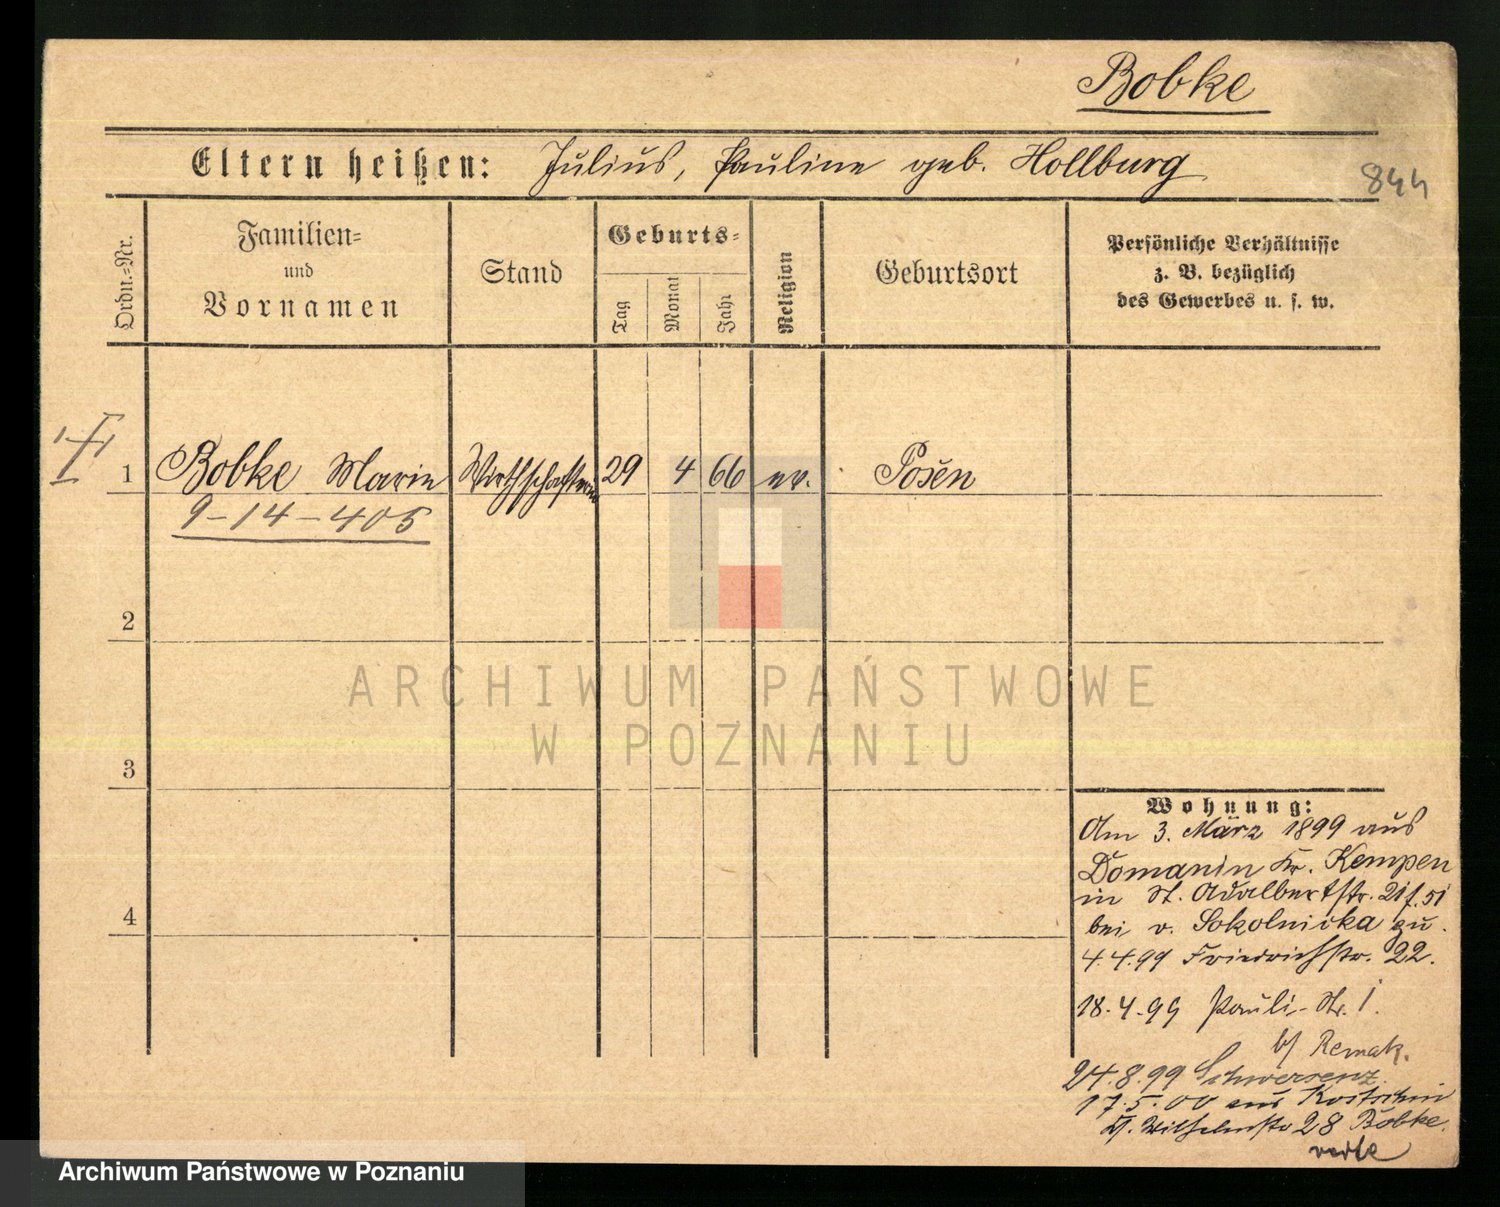 Bobke
Eltern heißen: Julius, Pauline geb. Hollburg
844
Ordn.=Nr.
Familien=
und
Vornamen
Stand
Geburts=
Tag
Monat
Jahr
Religion
Geburtsort
Persönliche Verhältnisse
z. B. bezüglich
des Gewerbes u. s. w.
1 Bobke Marie Wirthschafterin 29 4 66 ev. Posen
9-14-405
2
3
4
Wohnung:
Am 3. März 1899 aus
Domanin Kr. Kempen
in St. Adalbertstr.
bei v. Sokolnicka zu.
4.4.99 Friedrichstr. 22.
18.4.99 Pauli-Str. 1.
b/ Remak.
24.8.99 Schwersenz.
17.5.00 aus Kostschin
Wilhelmstr 28 Bobke.
verte
ARCHIWUM PAŃSTWOWE
W POZNANIU
Archiwum Państwowe w Poznaniu